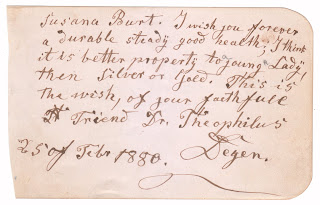 Susana Burt. I wish you forever
a durable steady good health, I think
it is better property to young Lady
then Silver or Gold. This is
the wish, of your faithfull
Friend Dr. Theophilus
25 of Febr 1880. Degen.